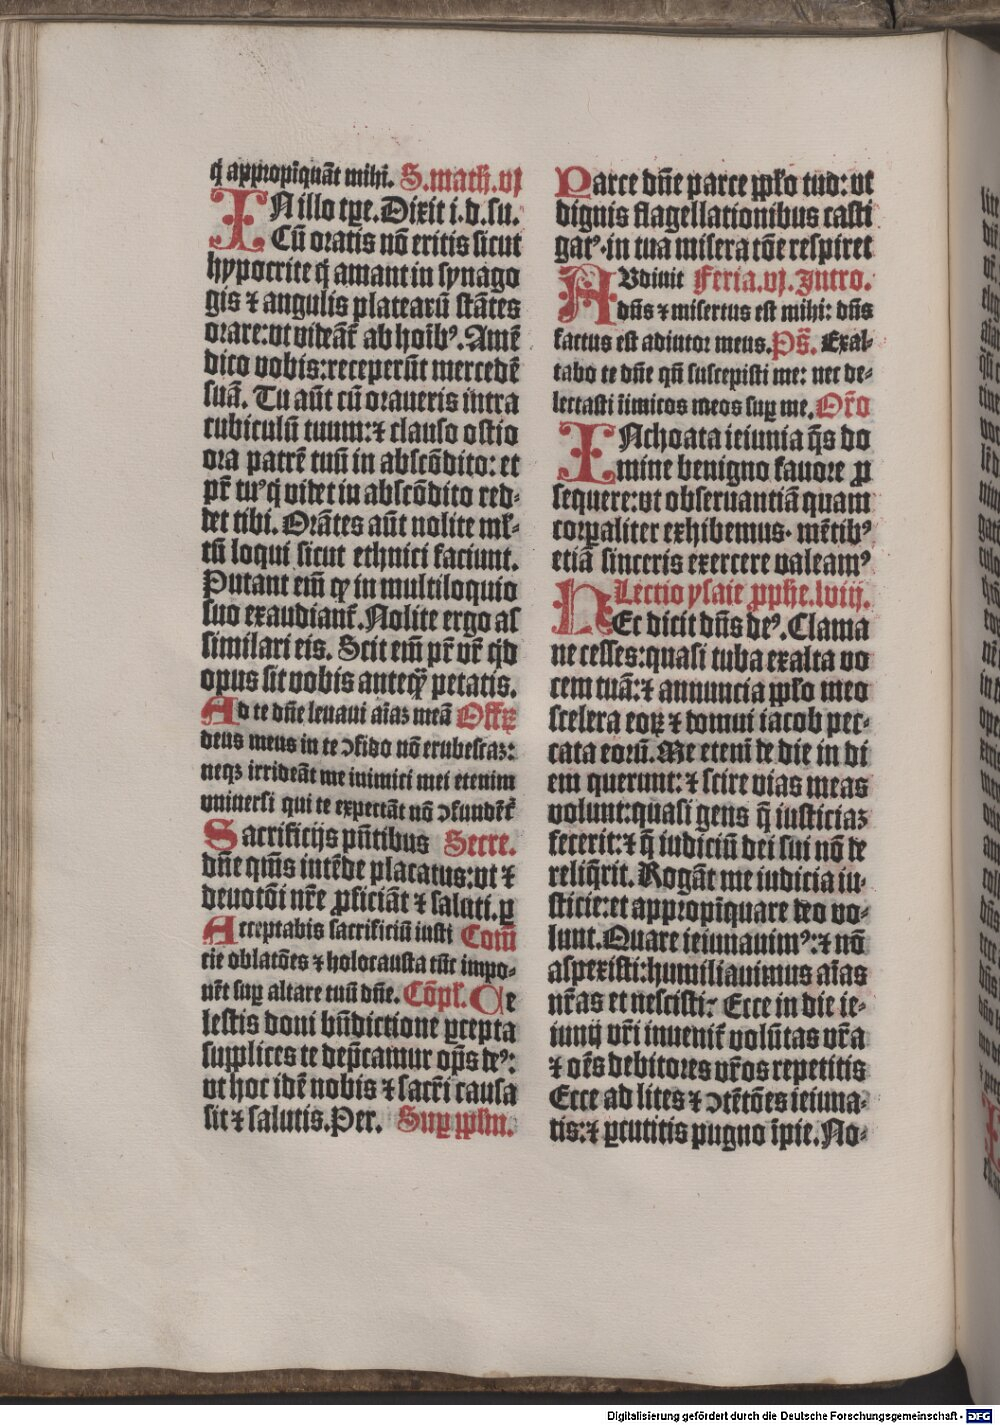 q̃ appropīquãt mihi. S. math. vj
IN illo tp̄e. Dixit i. d. su.
Cū oratis nō eritis sicut
hypocrite q̃ amant in synago
gis ⁊ angulis platearū stātes
orare: ut videāt᷑ ab hoīb⁹. Amē
dico vobis: receperūt mercedē
suā. Tu aūt cū oraveris intra
cubiculū tuum: ⁊ clauso ostio
ora patrē tuū in abscōdito: et
pr̄ tu⁹ q̃ videt in abscōdito red-
det tibi. Orātes aūt nolite ml̄-
tū loqui sicut ethnici faciunt.
Putant em̄ ꝙ in multiloquio
suo exaudiant᷑. Nolite ergo as
similari eis. Scit em̄ pr̄ vr̄ qd̄
opus sit vobis anteqȝ petatis.
Ad te dn̄e levavi aīaꝫ meā Offꝝ
deus meus in te ↄfido nō erubescaꝫ:
neqꝫ irrideāt me inimici mei etenim
vniversi qui te expectāt nō ↄfundēt᷑
Sacrificijs pn̄tibus Secre.
dn̄e qm̄s intēde placatus: ut ⁊
devotōi nr̄e ꝓficiāt ⁊ saluti. ꝑ
Acceptabis sacrificiū iusti Com̄
cie oblatōes ⁊ holocausta tūc impo-
nēt suꝑ altare tuū dn̄e. Cōpl̄. Ce
lestis doni bn̄dictione ꝑcepta
supplices te dep̄camur op̄s de⁹:
ut hoc idē nobis ⁊ sacr̄i causa
sit ⁊ salutis. Per. Suꝑ pp̄lm.
Parce dn̄e parce pp̄lo tuo: ut
dignis flagellationibus casti
gat⁹· in tua miseratōe respiret
AUdivit Feria. vj. Intro.
dn̄s ⁊ misertus est mihi: dn̄s
factus est adiutor meus. Ps̄. Exal-
tabo te dn̄e qm̄ suscepisti me: nec de-
lectasti īimicos meos suꝑ me. Or̄o
INchoata ieiunia q̄s do
mine benigno favore ꝓ
sequere: ut observantiā quam
corꝑaliter exhibemus· mētib⁹
etiā sinceris exercere valeam⁹
Lectio ysaie ꝓphe. lviij.
HEc dicit dn̄s de⁹. Clama
ne cesses: quasi tuba exalta vo
cem tuā: ⁊ annuncia pp̄lo meo
scelera eoꝝ ⁊ domui iacob pec-
cata eorū. Me etenī de die in di
em querunt: ⁊ scire vias meas
volunt: quasi gens q̄ iusticiaꝫ
fecerit: ⁊ q̄ iudiciū dei sui nō de
reliq̄rit. Rogāt me iudicia iu-
sticie: et appropīquare deo vo-
lunt. Quare ieiunavim⁹: ⁊ nō
aspexisti: humiliavimus aīas
nr̄as et nescisti? Ecce in die ie-
iunij vr̄i invenit᷑ volūtas vr̄a
⁊ oēs debitores vr̄os repetitis
Ecce ad lites ⁊ ↄtētōes ieiuna-
tis: ⁊ ꝑcutitis pugno īpie. No-
Digitalisierung gefördert durch die Deutsche Forschungsgemeinschaft - DFG